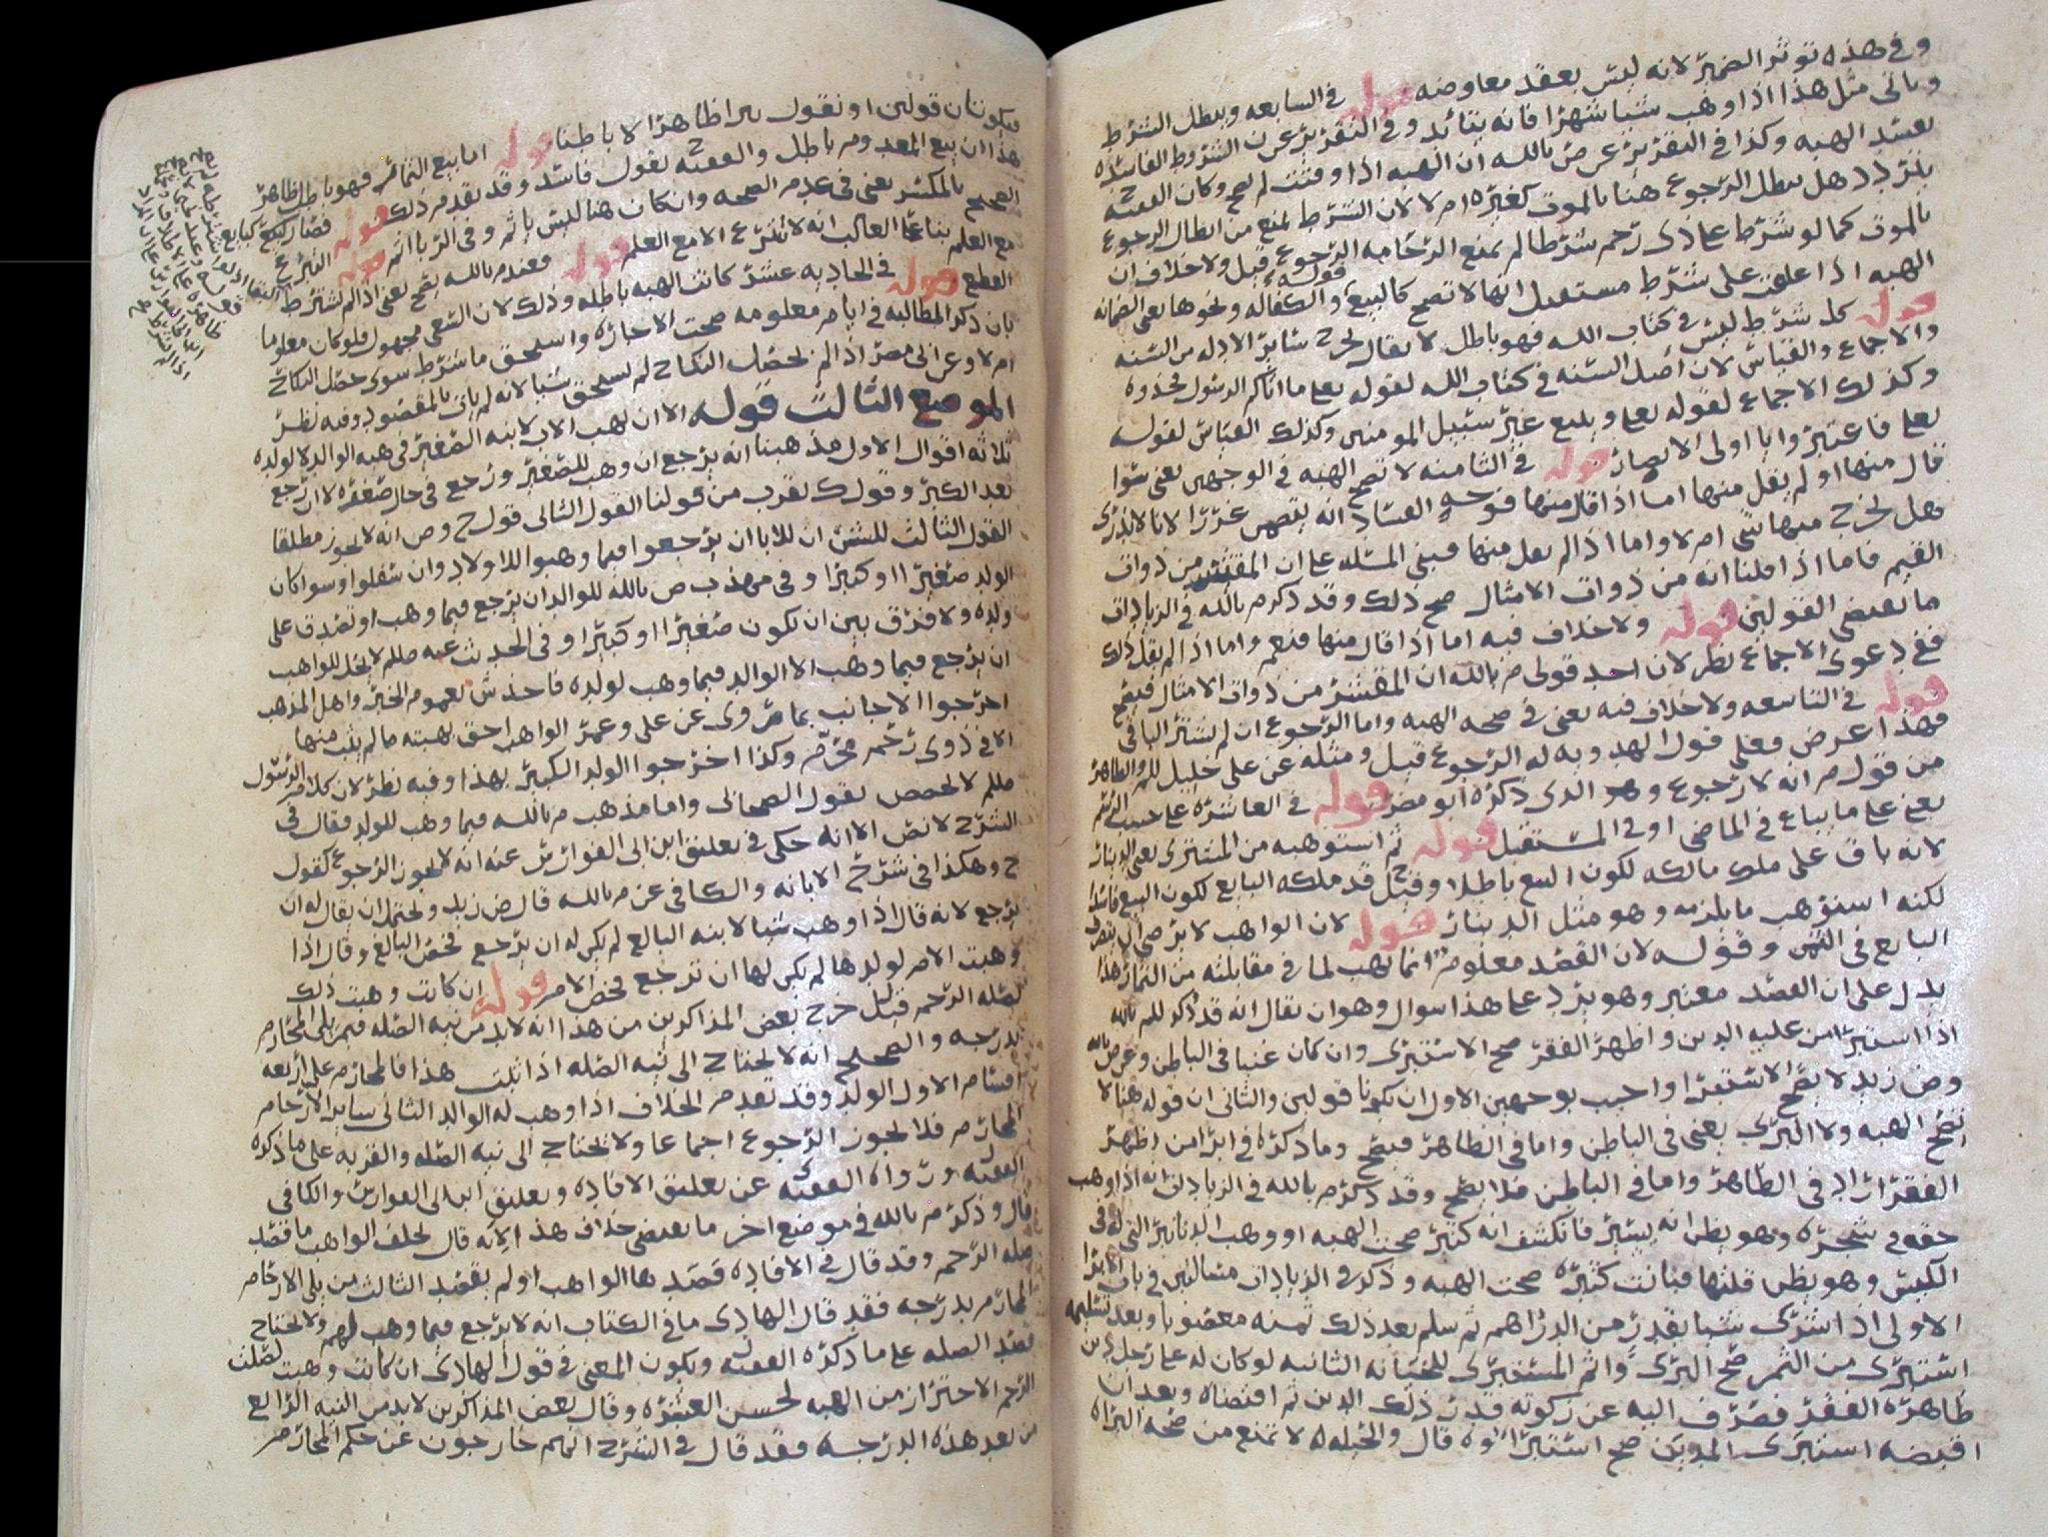 وفي هذه تؤثر الضمير لانه ليس بعقد معاوضه قوله في السابعه ويبطل الشرط
وياتي مثل هذا اذا وهب شيا شهرا فانه يتابد وفي التقرير عن الشروط الفاسده
تفسد الهبه وكذا في التقرير عن ض بالله ان الهبه اذا وقتت لم تصح وكان الفقيه
يتردد هل يبطل الرجوع هنا بالموت كغيره ام لا لان الشرط يمنع من ابطال الرجوع
بالموت كما لو شرط على ذي رحم شرطا لم يمنع الرحامه الرجوع قيل ولا خلاف ان
الهبه اذا علقت على شرط مستقبل انها لا تصح كالبيع قوله والكفاله ونحوها يعني الضمانه
قوله كل شرط ليس في كتاب الله فهو باطل لا يقال يخرج سائر الادله من السنه
والاجماع والقياس لان اصل السنه في كتاب الله لقوله تعلى ما اتاكم الرسول فخذوه
وكذلك الاجماع لقوله تعلى ويتبع غير سبيل المومنين وكذلك القياس لقوله
تعلى فاعتبروا يا اولى الابصار قوله في الثامنه لا تصح الهبه في الوجهين يعني سوا
قال منها او لم يقل منها اما اذا قال منها فوجه الفساد انه غررا لانا لا ندري
هل يخرج منها شي ام لا واما اذا لم يقل منها فبنى المسله على ان المقشر من ذوات
القيم فاما اذا قلنا انه من ذوات الامثال صح ذلك وقد ذكر م بالله في الزيادات
ما يقتضي القولين قوله ولا خلاف فيه اما اذا قال منها فنعم واما اذا لم يقل ذلك
ففي دعوى الاجماع نظر لان احد قولي م بالله ان المقشر من ذوات الامثال فيصح
قوله في التاسعه ولا خلاف فيه يعني في صحه الهبه واما الرجوع ان لم يشتر الباقي
فهذا عرض فعلى قول الهدويه له الرجوع قيل ومثله عن علي خليل للم والظاهر
من قول م انه لا رجوع وهو الذي ذكره ابو مضر قوله في العاشره على حسب
يعني على ما يباع في الماضي او في المستقبل قوله ثم استوهبه من المشتري يعني الدينار
لانه باق على ملك مالكه لكون البيع باطلا وقيل قد ملكه البايع لكون البيع فاسدا
لكنه استوهب ما يلزمه وهو مثل الدينار قوله لان الواهب لا يرضى
البايع في الثمن وقوله لان القصد معلوم انما يهب لما في مقابلته من الثمار هذا
يدل على ان القصد معتبر وهو يرد على هذا سوال وهو ان يقال انه قد ذكر للم بالله
اذا استبرا من عليه الدين واظهر الفقر صح الاستبرى وان كان غنيا في الباطن وعن ض بالله
وض زيد لا يصح الاستبرا واجيب بوجهين الاول ان يكونا قولين والثاني ان قوله هنا لا
تصح الهبه ولا البرى يعني في الباطن واما في الظاهر فيصح وما ذكره في ابرا من اظهر
الفقر اراد في الظاهر واما في الباطن فلا يصح وقد ذكر م بالله في الزيادات انه اذا وهب
حقه في شجره وهو يظن انه يسير فانكشف انه كثير صحت الهبه او وهب الدنانير التي له في
الكيس وهو يظن قلتها فبانت كثيره صحت الهبه وذكر في الزيادات مسالتين في باب الابرا
الاولى اذا اشترى شيا بقدر من الدراهم ثم سلم بعد ذلك ثمنه مغصوبا وبعد تسليمه
استبرى من الثمن صح البرى واثم المستبرى للخيانه الثانيه لو كان له على رجل دين
ظاهره الفقر فصرف اليه عن زكوته قدر ذلك الدين ثم اقتضاه وبعد ان
اقبضه استبرى المديون صح استبراوه قال والحيله لا تمنع من صحه البراه
فيكونان قولين او نقول يبرا ظاهرا لا باطنا قوله اما بيع الثمائر فهو باطل ظاهر
هذا ان بيع المعدوم باطل والفقيه ح يقول فاسد وقد تقدم ذلك قوله فصار كبيع كبايع
الصحيح بالمكسر يعني في عدم الصحه وان كان هنا ليس باثم وفي الربا اثم قوله التبرع
مع العلم بنا على الغالب انه لا يتبرع الا مع العلم قوله فعند م بالله يصح يعني اذا لم يشترط
القطع قوله في الحاديه عشر كانت الهبه باطله وذلك لان السعي مجهول فلو كان معلوما
بان ذكر المطالبه في ايام معلومه صحت الاجاره واستحق ما شرط سوى حصل النكاح
ام لا وعن ابي مضر اذا لم يحصل النكاح لم يستحق شيا لانه لم يات بالمقصود وفيه نظر
الموضع الثالث قوله الا ان يهب الاب لابنه الصغير في هبه الوالد لولده
ثلاثه اقوال الاول مذهبنا انه يرجع ان وهب للصغير ورجع في حال صغره لا ان رجع
بعد الكبر وقول ك يقرب من قولنا القول الثاني قول ح وص انه لا يجوز مطلقا
القول الثالث للش ان للابا ان يرجعوا فيما وهبوا للاولاد وان سفلوا وسوا كان
الولد صغيرا او كبيرا وفي مهذب ص بالله للوالد ان يرجع فيما وهب او تصدق على
ولده ولا فرق بين ان يكون صغيرا او كبيرا وفي الحديث عنه صللم لا يحل للواهب
ان يرجع فيما وهب الا الوالد فيما وهب لولده فاخذ ش بعموم الخبر واهل المذهب
اخرجوا الاجانب بما روى عن علي وعمر الواهب احق بهبته ما لم يثب منها
الا في ذوى رحم محرم وكذا اخرجوا الولد الكبير بهذا وفيه نظر لان كلام الرسول
صللم لا يخصص بقول الصحابي واما مذهب م بالله فيما وهب للولد فقال في
الشرح لا نص الا انه حكى في تعليق ابن ابي الفوارس عنه انه لا يجوز الرجوع كقول
ح وهكذا في شرح الابانه والكافي عن م بالله قال ض زيد ويحتمل ان يقال له ان
يرجع لانه قال اذا وهب شيا لابنه البالغ لم يكن له ان يرجع فخص البالغ وقال اذا
وهبت الام لولدها لم يكن لها ان ترجع فخص الام قوله ان كانت وهبت ذلك
لصله الرحم قيل خرج بعض المذاكرين من هذا انه لا بد من نيه الصله فيمن يلي المحارم
بدرجه والصحيح انه لا يحتاج الى نيه الصله اذا ثبت هذا فالمحارم على اربعه
اقسام الاول الولد وقد تقدم الخلاف اذا وهب له الوالد الثاني ساير الارحام
المحارم فلا يجوز الرجوع اجماعا ولا يحتاج الى نيه الصله والقربه على ما ذكره
الفقيه ل ورواه الفقيه ف عن تعليق الافاده وتعليق ابن ابي الفوارس والكافي
قال وذكر م بالله في موضع اخر ما يقتضي خلاف هذا لانه قال يحلف الواهب ما قصد
صله الرحم وقد قال في الافاده قصدها الواهب او لم يقصد الثالث من يلي الارحام
المحارم بدرجه فقد قال الهادى ما في الكتاب انه لا يرجع فيما وهب لهم ولا يحتاج
قصد الصله على ما ذكره الفقيه ل ويكون المعنى في قول الهادى ان كانت وهبت لصلت
الرحم الاحتراز من الهبه لحسن العشره وقال بعض المذاكرين لا بد من النيه الرابع
من بعد هذه الدرجه فقد قال في الشرح انهم خارجون عن حكم المحارم